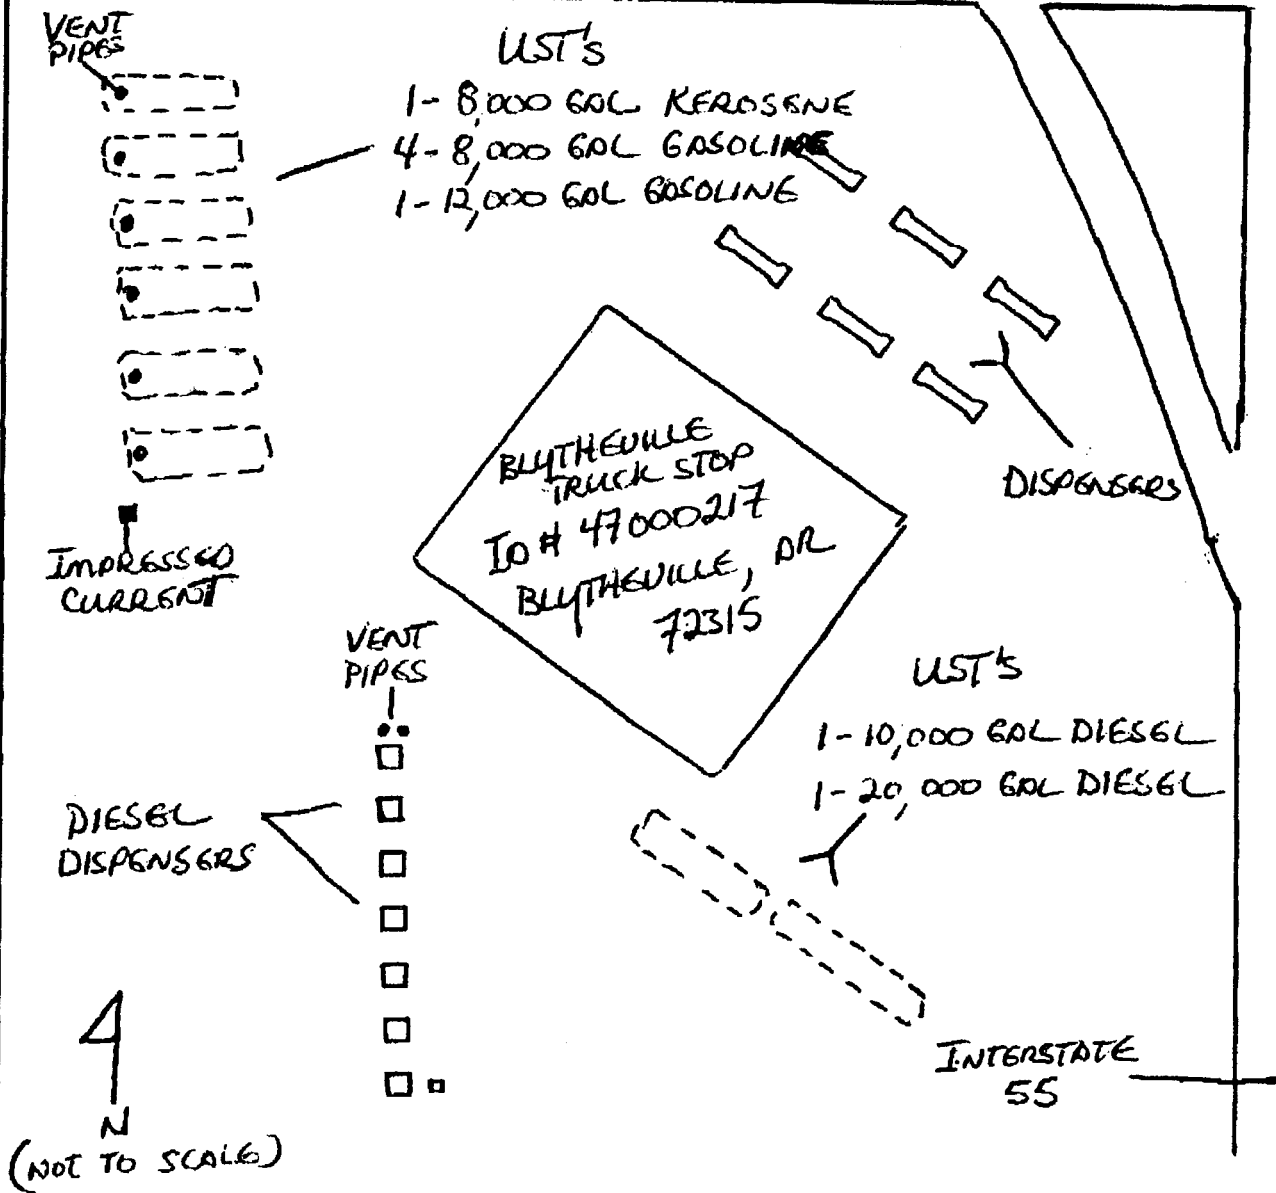 VENT
PIPES
UST's
1-8,000 GAL KEROSENE
4-8,000 GAL GASOLINE
1-12,000 GAL GASOLINE
DISPENSERS
BLYTHEVILLE
TRUCK STOP
ID # 47000217
BLYTHEVILLE, AR
72315
IMPRESSED
CURRENT
VENT
PIPES
UST's
1-10,000 GAL DIESEL
1-20,000 GAL DIESEL
DIESEL
DISPENSERS
INTERSTATE
55
N
(NOT TO SCALE)